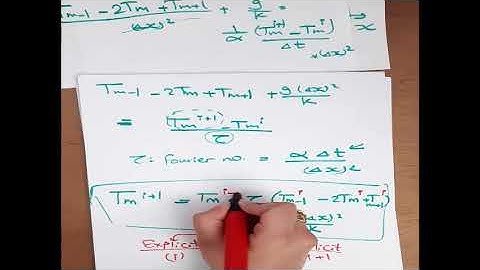 Tm-1 - 2Tm + Tm+1 + g/k =
(Δx)²
1/α (Tm^i+1 - Tm^i)/Δt x
*(Δx)²
Tm-1 - 2Tm + Tm+1 + g(Δx)²/k
= (Tm^i+1 - Tm^i)/(τ)
τ: fourier no. = α Δt/(Δx)²
Tm^i+1 = Tm^i τ (Tm-1^i - 2Tm^i + Tm+1^i)
(Δx)²/k
Explicit
(i) i+1